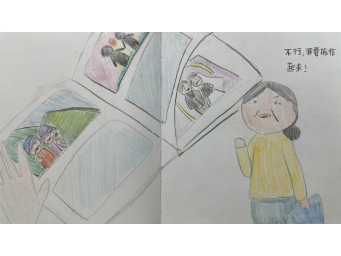 不行，我要振作
起来！